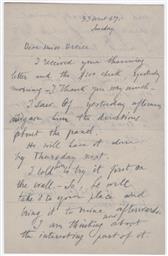 33 West 67.
Sunday
Dear Miss
I received your charming
letter and the $100 check yesterday
morning – I thank you very much –
I saw Of yesterday afternoon
and gave him the decisions
about the panel.
He will have it done
by Thursday next.
I told him to try it first on
the wall – So he will
take it to your place and
bring it to mine afterwards.
I am thinking about
the interesting part of it